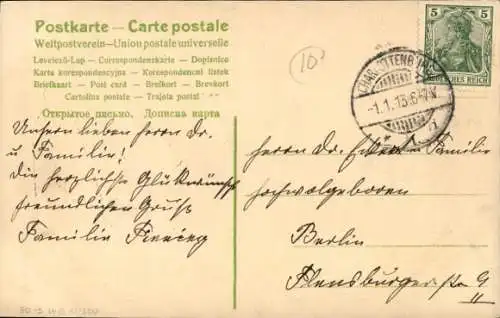 Postkarte — Carte postale
Weltpostverein — Union postale universelle
Levelező-Lap — Correspondenzkarte — Dopisnice
Karta korespondencyjna — Korespondenční lístek
Briefkaart — Post card — Brefkort — Brevkort
Cartolina postale — Tarjeta postal
Открытое письмо. Дописна карта
10
5 5
DEUTSCHES REICH
CHARLOTTENBURG
-1.1.13.6-7N.
Unsern lieben Herrn Dr.
u Familie!
Die herzlichste Glückwünsche
freundlichen Gruss
Familie
Herrn Dr. u Familie
hochwolgeboren
Berlin
Flensburgerstr 9
II